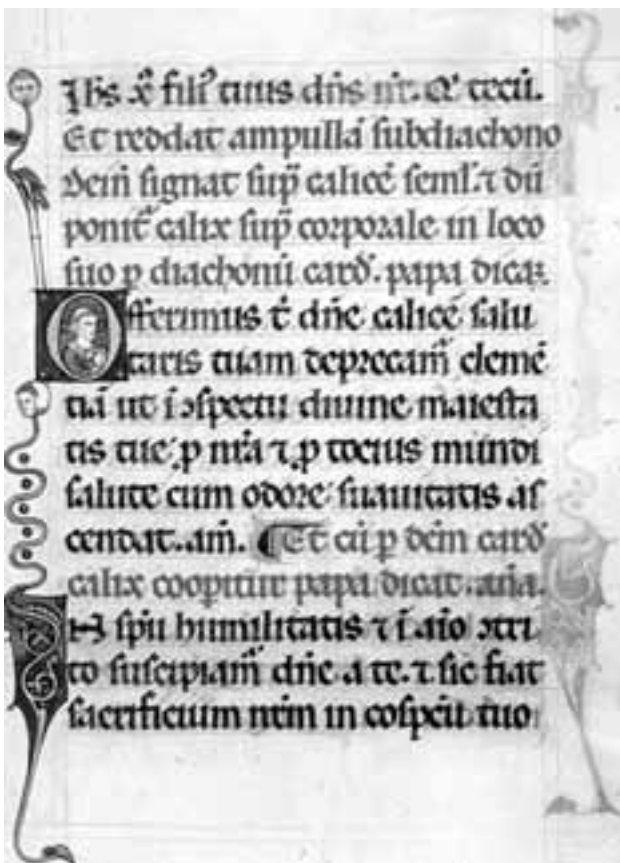 Ihs xp̄ filiꝰ tuus dn̄s nr̄. Qͥ tecū.
Et reddat ampullā subdiachono
dein̄ signat sup̄ calicē seml̕. ⁊ dū
ponit̕ calix sup̄ corporale in loco
suo p diachonū card̕. papa dicat.
Offerimus t̄ dn̄e calicē salu
taris tuam deprecam̄ clemē
tiā ut ī ꝯspectu diuine maiesta
tis tue. p nr̄a ⁊ p tocius mundi
salute cum odore suauitatis as
cendat. am̄. ¶ Et cū p dc̄m card̕
calix coopitur papa dicat. aña.
In spū humilitatis ⁊ ī aīo ꝯtri
to suscipiam̄ dn̄e a te. ⁊ sic fiat
sacrificium nr̄m in cōspc̄u tuo